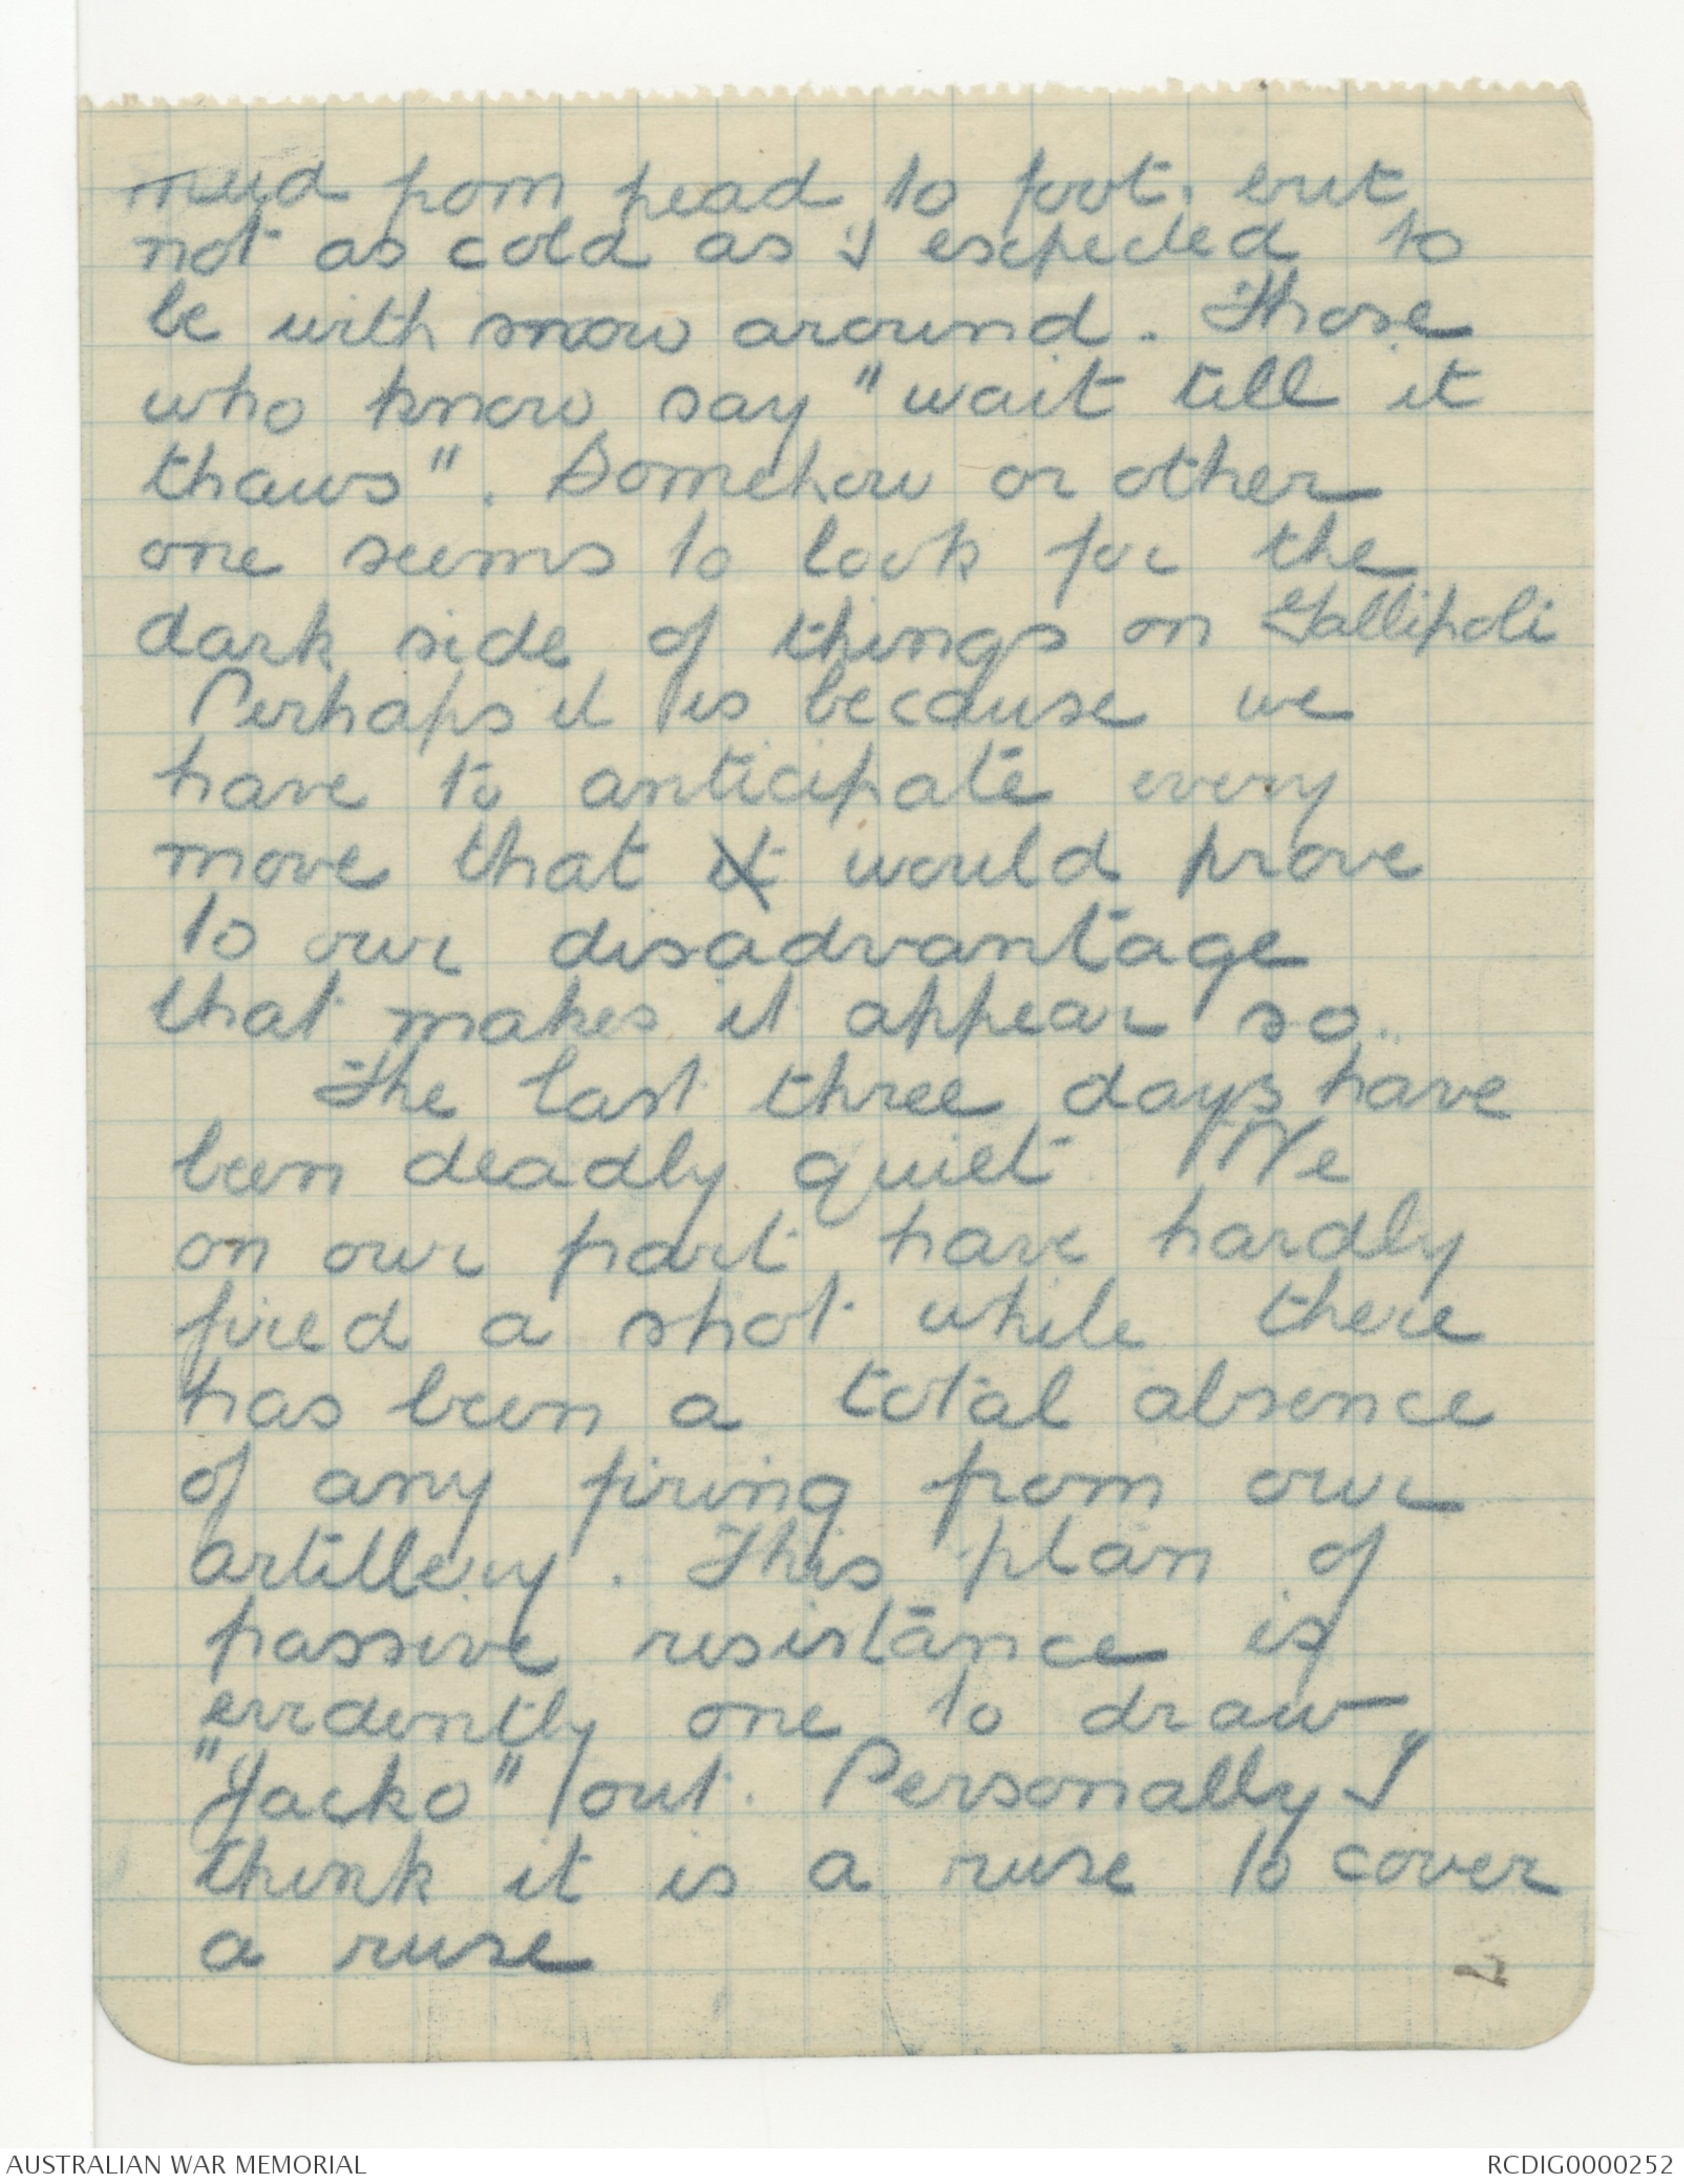 mud from head to foot. but
not as cold as I expected to
be with snow around. Those
who know say "wait till it
thaws". Somehow or other
one seems to look for the
dark side of things on Gallipoli
Perhaps it is because we
have to anticipate every
move that it would prove
to our disadvantage
that makes it appear so.
The last three days have
been deadly quiet We
on our part have hardly
fired a shot while there
has been a total absence
of any firing from our
artillery. This plan of
passive resistance is
evidently one to draw
"Jacko" out. Personally I
think it is a ruse to cover
a ruse
AUSTRALIAN WAR MEMORIAL
RCDIG0000252